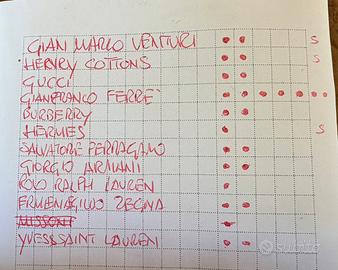 GIAN MARCO VENTURI S
HENRY COTTONS S
GUCCI
GIANFRANCO FERRE'
BURBERRY
HERMES S
SALVATORE FERRAGAMO
GIORGIO ARMANI
POLO RALPH LAUREN
ERMENEGILDO ZEGNA
MISSONI
YVES SAINT LAUREN